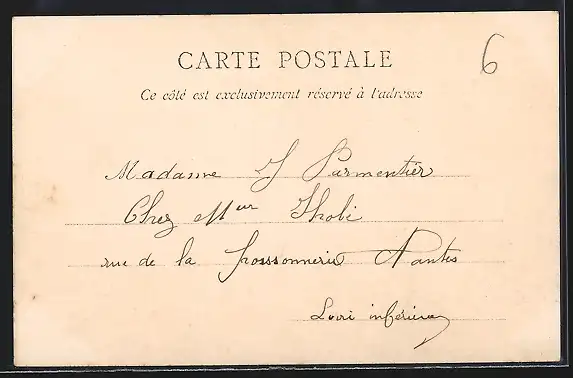 CARTE POSTALE
6
Ce côté est exclusivement réservé à l'adresse
Madame J Parmentier
Chez Meur Thobi
rue de la poissonnerie Nantes
Loire inférieure